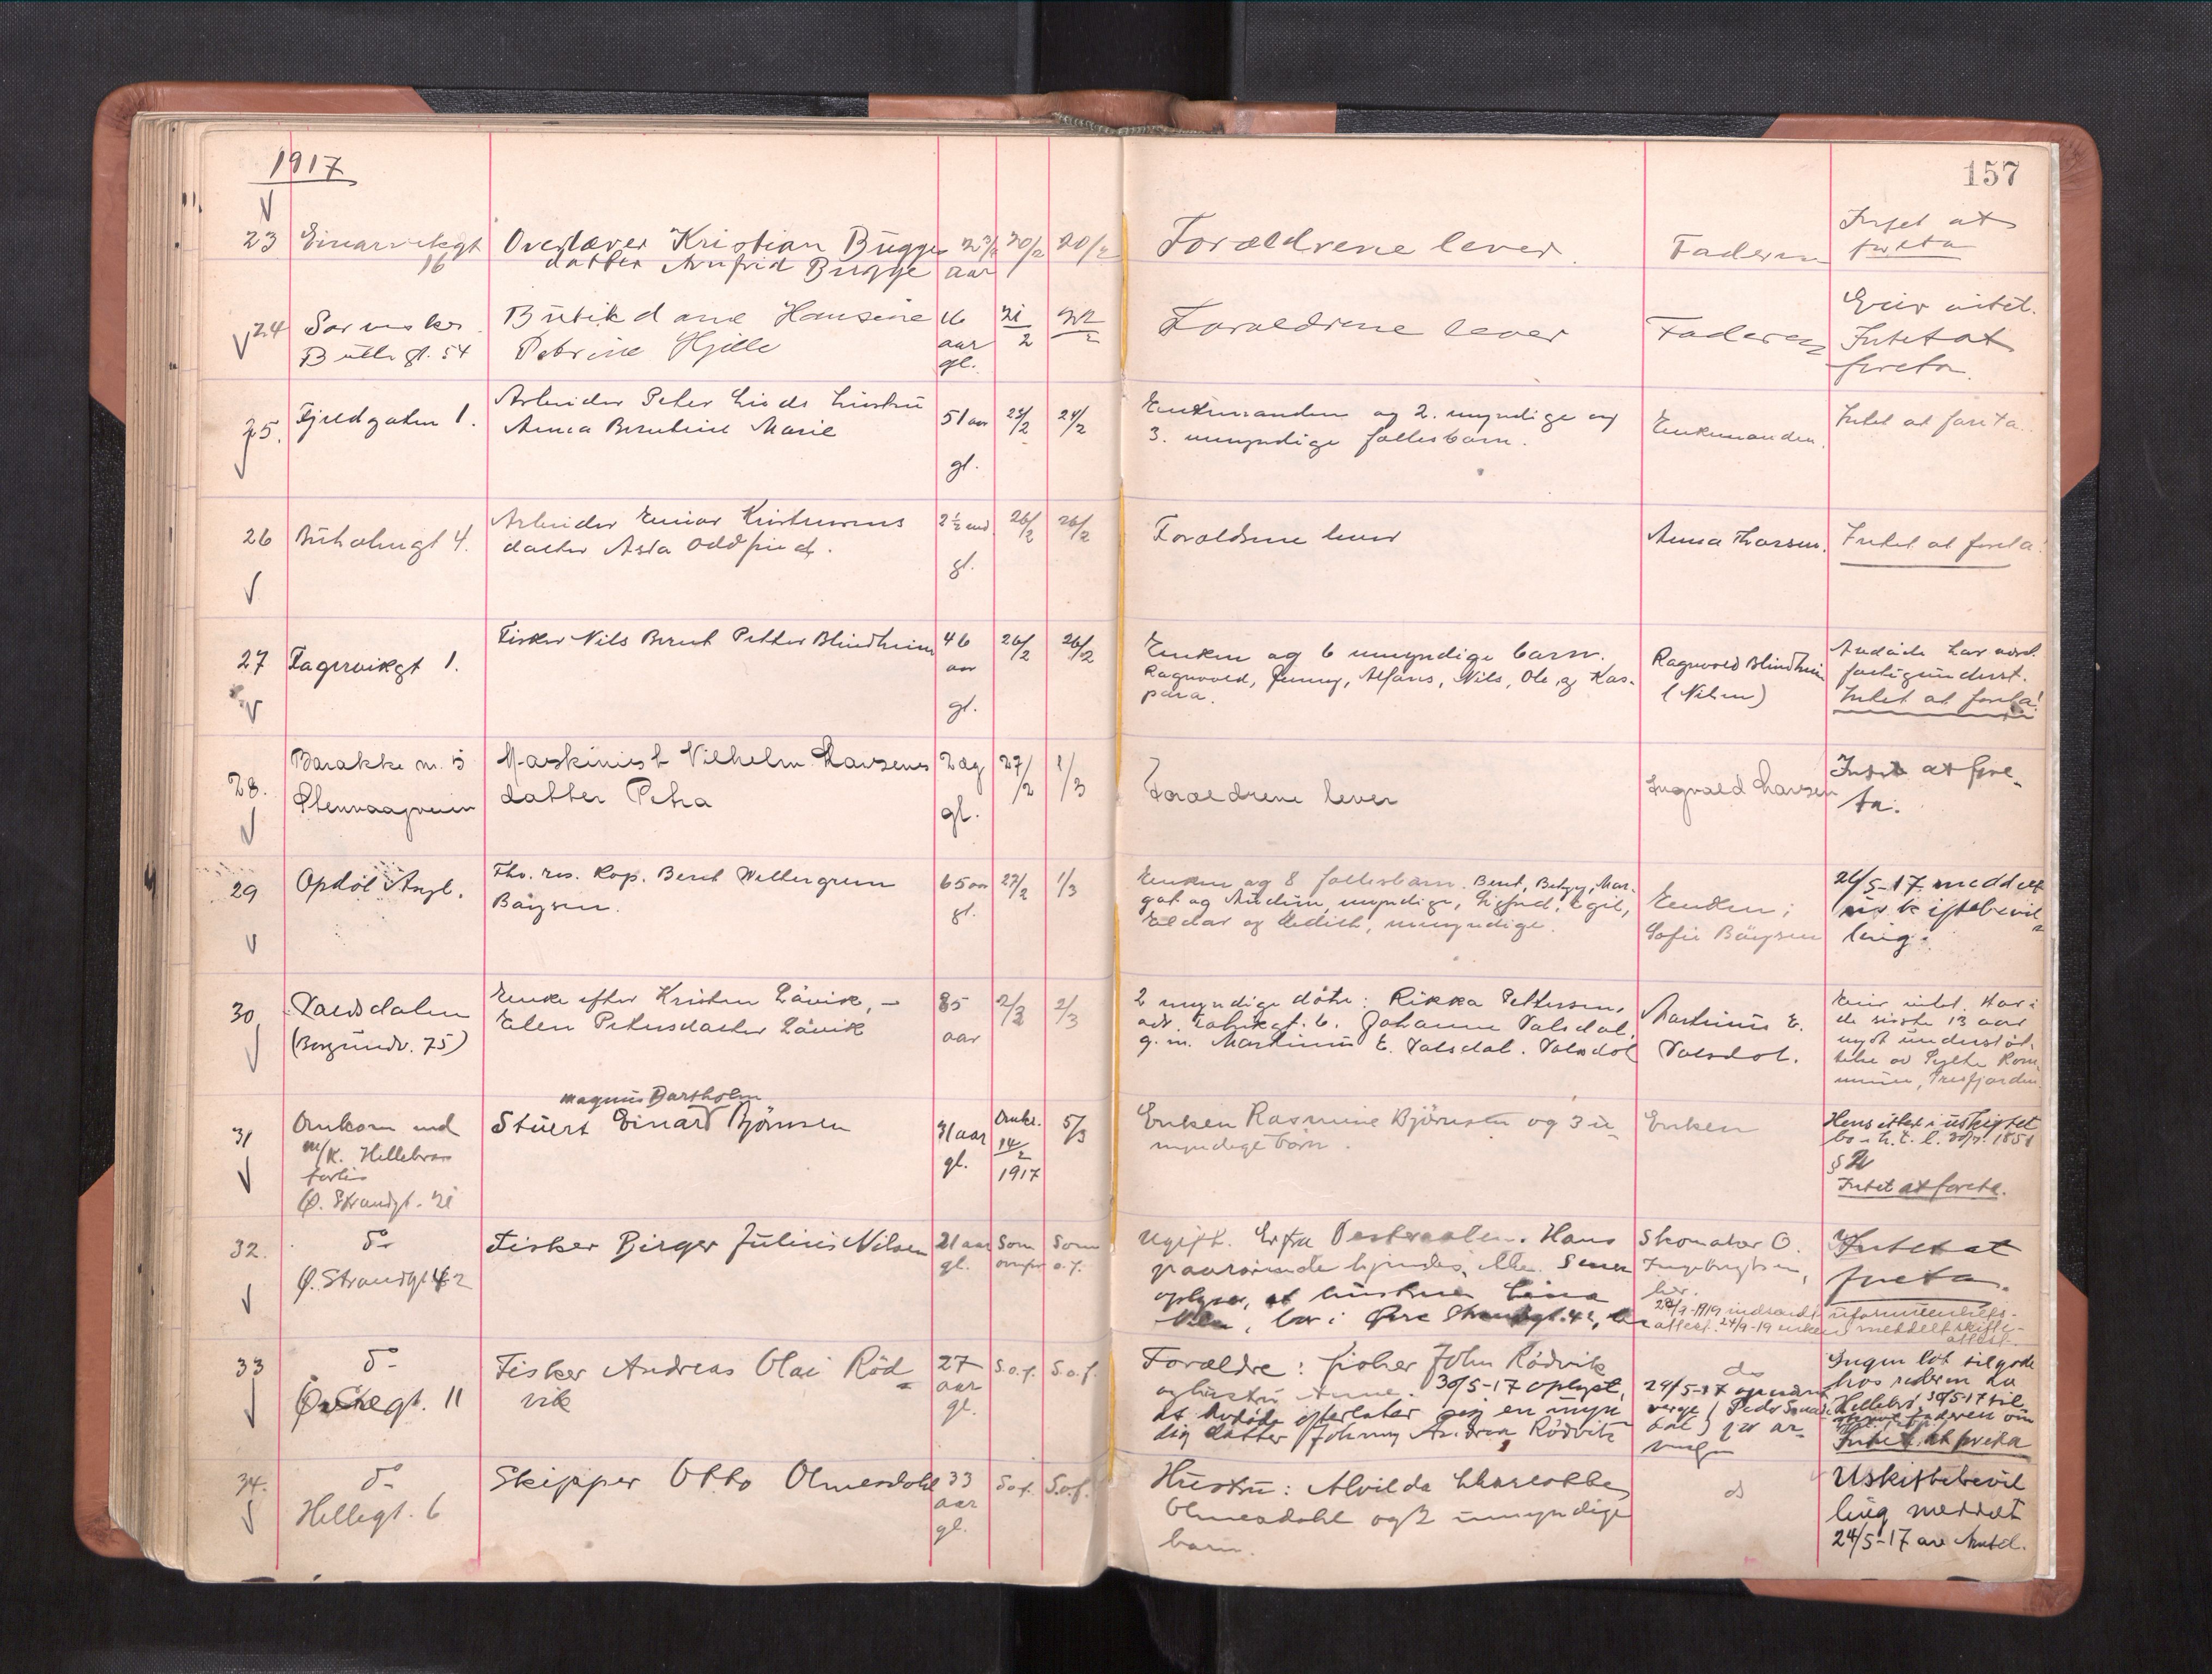 1917
157
23 Einarvikgt
16
Overlærer Kristian Bugges
datter Arnfrid Bugge
2 3/4
aar
20/2
20/2
Forældrene lever.
Faderen
Intet at
foreta
24
Butlr gt. 54
Butikdame Hansine
Petrine Hjelle
16
aar
gl.
21
2
22
2
Forældrene lever
Faderen
Eier intet.
Intet at
foreta.
25. Fjeldgaten 1.
Arbeider Peter Lieds hustru
Anna Berntine Marie
51 aar
gl.
23/2
24/2
Enkemanden og 2. myndige og
3. umyndige fællesbarn.
Enkemanden.
Intet at foreta.
26 Buholmgt 4.
Arbeider Einar Kristensens
datter Asta Oddfrid.
2 1/2 md
gl.
26/2
26/2
Forældrene lever
Anna Thorsen.
Intet at foreta!
27 Fagervikgt 1.
Fisker Nils Bernt Petter Blindheim
46
aar
gl.
26/2
26/2
Enken og 6 umyndige barn.
Ragnvald, Jenny, Alfons, Nils, Ole og Kas-
para.
Ragnvald Blindheim
(Nilsen)
Avdøde har været
fattigunderst.
Intet at foreta!
28. Barakke m. 5
Stenvaagveien
Maskinist Vilhelm Larsens
datter Petra
2 dg
gl.
27/2
1/3
Forældrene lever
Ingvald Larsen
Intet at fore-
ta.
29 Opdøl Angl.
Fhv. res. Kap. Bernt Wettergreen
Bøysen.
65 aar
gl.
27/2
1/3
Enken og 8 fællesbarn. Bernt, Betzy, Mar-
got og Audun, myndige, Sigfrid, Egil,
Eldar og Nedith, umyndige.
Enken;
Sofie Bøysen
24/5-17 meddelt
uskiftebevil-
ling.
30 Valdsdalen
(Borgundv. 75)
Enke efter Kristen Løvik, –
Elen Petersdatter Løvik
85
aar
2/3
2/3
2 myndige døtre: Rikka Pettersen,
adr. Fabrikgt. 6. Johanne Valsdal,
g. m. Martinus E. Valsdal. Valsdal
Martinus E.
Valsdal.
Eier intet. Har i
de siste 13 aar
nydt understøt-
telse av Sylte Kom-
mune, Tresfjorden
31 Omkom med
m/k. Hellebror
forlis
Ø. Strandgt. 21
Magnus Bartholm
Stuert Einard Bjørnsen
31 aar
gl.
Omk.
14/2
1917
5/3
Enken Rasmine Bjørnsen og 3 u-
myndige barn.
Enken
Hensitter i uskiftet
bo i h. t. l. 30/7. 1851
§ 2
Intet at foreta.
32. do
Ø. Strandgt 42
Fisker Birger Julius Nilsen
21 aar
gl.
Som
ovenfor
Som
o. f.
Ugift. Er fra Vesteraalen. Hans
paarørende kjendes ikke. Senere
oplyser, at hustruen Lina
bor i Øvre Strandgt. 42, her
Skomaker O.
Ingebrigtsen,
her.
24/9-1919 indsendt uformuenhets-
attest. 24/9-19 enken meddelt skifte-
attest.
Intet at
foreta.
33 do
Øvstegt. 11
Fisker Andreas Olai Röd-
vik
27
aar
gl.
S.o.f.
S.o.f.
Forældre: fisker John Rödvik
og hustru Anne. 30/5-17 oplyst,
at avdøde efterlater sig en umyn-
dig datter Johnny Andrea Rödvik
do
29/5-17 opnævnt
verge
Ingen lot tilgode
hos rederen av
Hellebror. 30/5-17 til-
faderen om
Intet at foreta
34. do
Hellegt. 6
Skipper Otto Olmesdahl
33
aar
gl.
S.o.f.
S.o.f.
Hustru: Alvilda Charlotte
Olmesdahl og 2 umyndige
barn.
do
Uskiftebevil
ling meddelt
24/5-17 av Amtd.